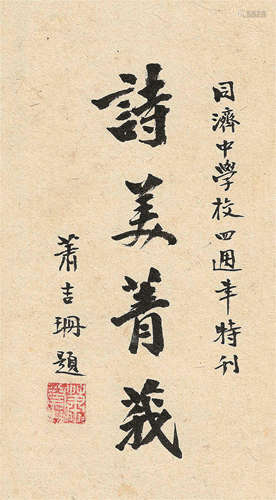 同濟中學校四週年特刊
詩美菁莪
蕭吉珊題